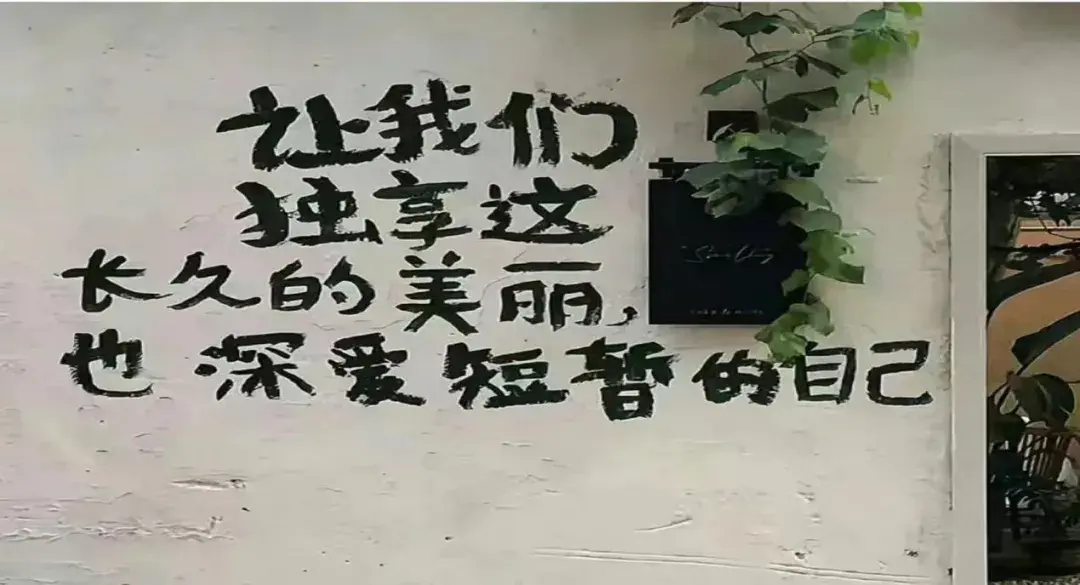 让我们
独享这
长久的美丽,
也深爱短暂的自己